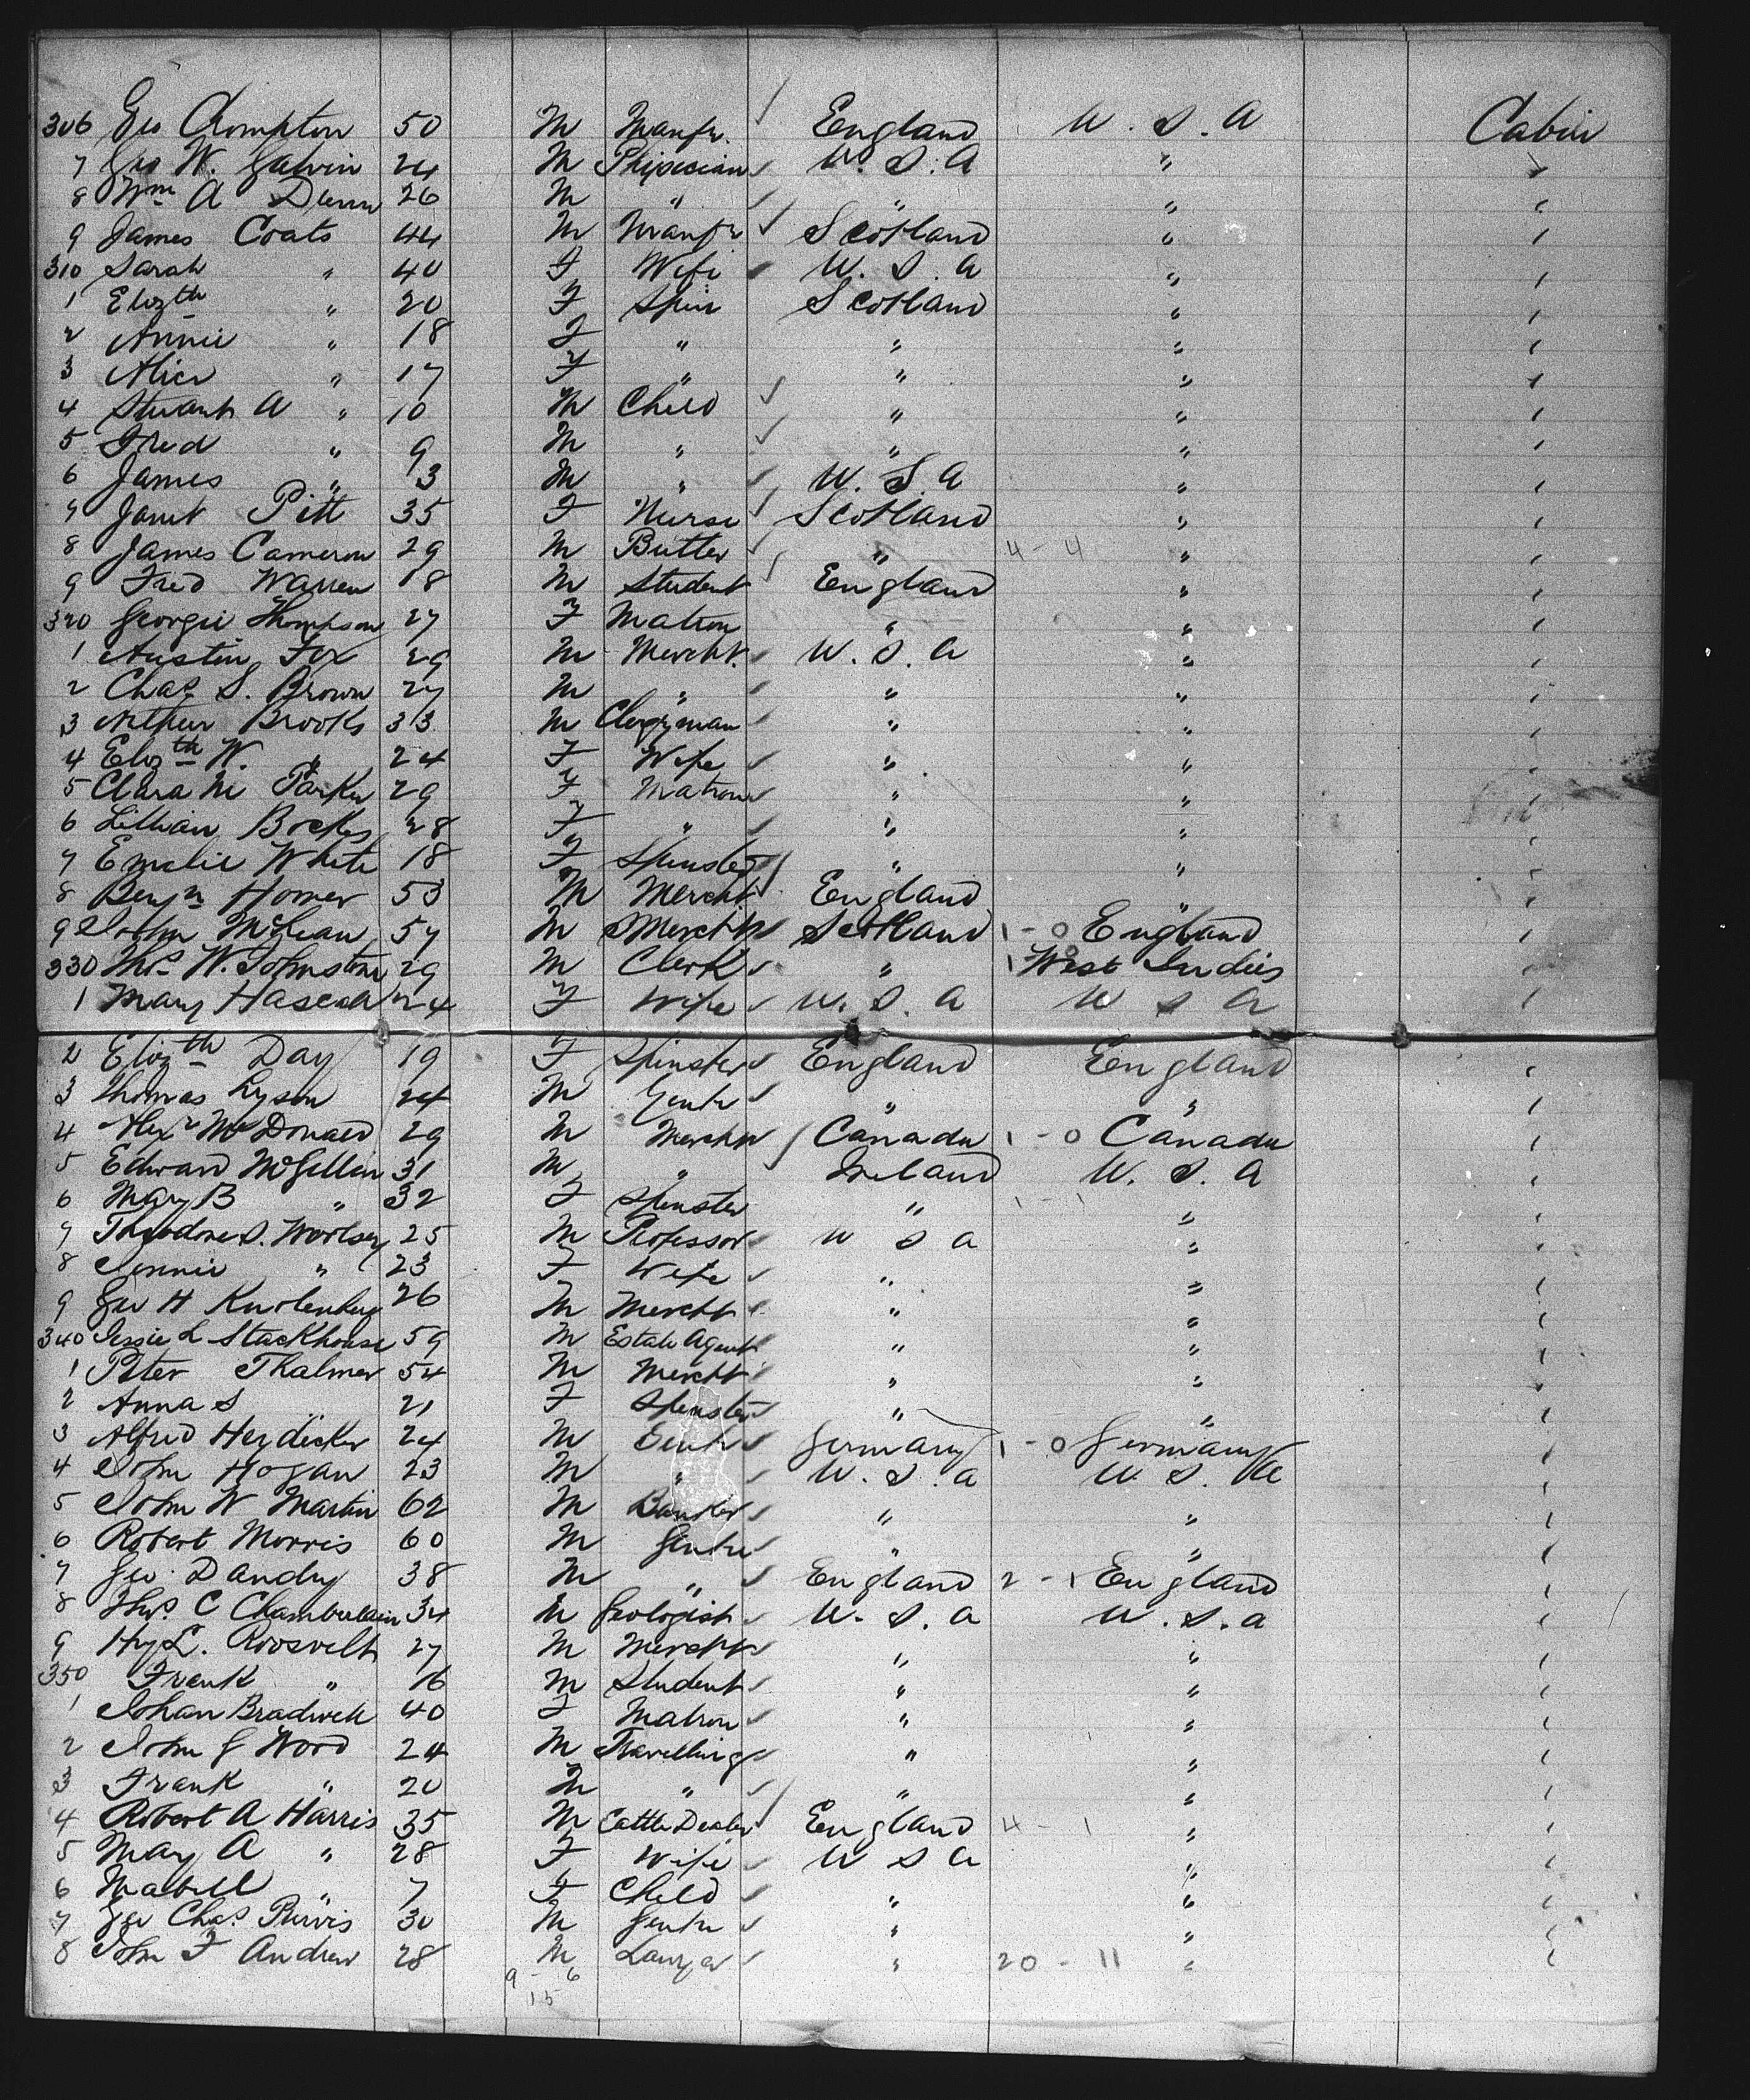 306 Geo Crompton 50 M Manfr. England U. S. A Cabin
7 Geo W. Galvin 24 M Phipecian U. S. A "
8 Wm A Dunn 26 M " " " "
9 James Coats 44 M Manfr Scotland " "
310 Sarah " 40 F Wife U. S. A " "
1 Elizth " 20 F Spin Scotland " "
2 Annie " 18 F " " " "
3 Alice " 17 F " " " "
4 Stuart A " 10 M Child " " "
5 Fred " 9 M " " " "
6 James " 3 M " U. S. A " "
7 Janet Pitt 35 F Nurse Scotland " "
8 James Cameron 29 M Butler " 4 - 4 " "
9 Fred Warren 18 M Student England " "
320 Georgie Thompson 27 F Matron " " "
1 Austin Fox 29 M Mercht. U. S. A " "
2 Chas S. Brown 27 M " " " "
3 Arthur Brooks 33 M Clergyman " " "
4 Elizth W. " 24 F Wife " " "
5 Clara M Parker 29 F Matron " " "
6 Lillian Bockes 28 F " " " "
7 Emalie White 18 F Spinster " " "
8 Benjn Homer 53 M Mercht England " "
9 John McLean 57 M Mercht Scotland 1 - 0 England "
330 Thos W. Johnstone 29 M Clerk " 1 West Indies "
1 Mary Hascah 24 F Wife U. S. A U S A "
2 Elizth Day 19 F Spinster England England "
3 Thomas Lyson 24 M Gentn " " "
4 Alexr McDonald 29 M Mercht Canada 1 - 0 Canada "
5 Edward McGellin 31 M " Ireland U. S. A "
6 Mary B " 32 F Spinster " 1 - 1 " "
7 Theodore S. Woolsey 25 M Professor U S A " "
8 Jennie " 23 F Wife " " "
9 Geo H Knolenberg 26 M Mercht " " "
340 Jessie L Stackhouse 59 M Estate Agent " " "
1 Peter Thalmer 54 M Mercht " " "
2 Anna S " 21 F Spinster " " "
3 Alfred Heydecker 24 M Gentn Germany 1 - 0 Germany "
4 John Hogan 23 M " U. S. A U. S. A "
5 John W Martin 62 M Banker " " "
6 Robert Morris 60 M Gentn " " "
7 Geo. Dandry 38 M " England 2 - 1 England "
8 Thos. C Chamberlain 34 M Geologist U. S. A U. S. A "
9 Hy L. Roosvelt 27 M Mercht " " "
350 Frank " 16 M Student " " "
1 Johan Bradwell 40 F Matron " " "
2 John G Word 24 M Travelling " " "
3 Frank " 20 M " " " "
4 Robert A Harris 35 M Cattle Dealer England 4 - 1 " "
5 Mary A " 28 F Wife U S A " "
6 Mabell " 7 F Child " " "
7 Geo Chas. Purvis 30 M Gentn " " "
8 John F Andrew 28 M Lawyer " 20 - 11 " "
9 - 6
15